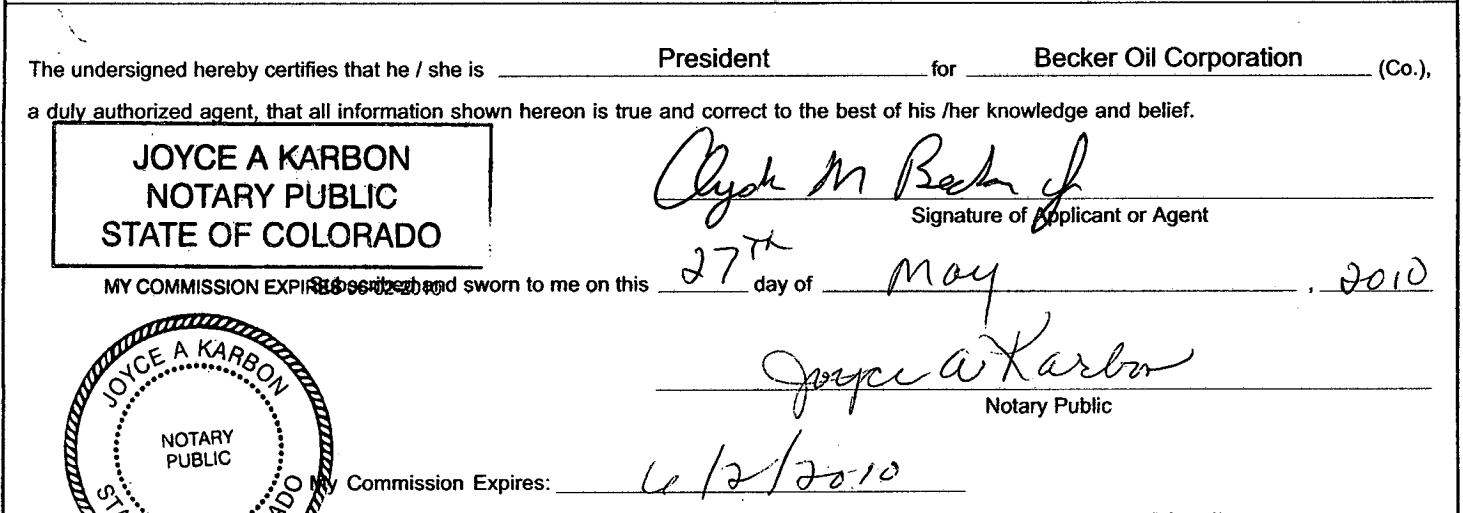 The undersigned hereby certifies that he / she is President for Becker Oil Corporation (Co.),
a duly authorized agent, that all information shown hereon is true and correct to the best of his /her knowledge and belief.
JOYCE A KARBON
NOTARY PUBLIC
STATE OF COLORADO
Clyde M Becker Jr
Signature of Applicant or Agent
MY COMMISSION EXPIRES 06-02-2010
Subscribed and sworn to me on this 27th day of May, 2010
Joyce A Karbon
Notary Public
JOYCE A KARBON
NOTARY
PUBLIC
My Commission Expires: 6/2/2010